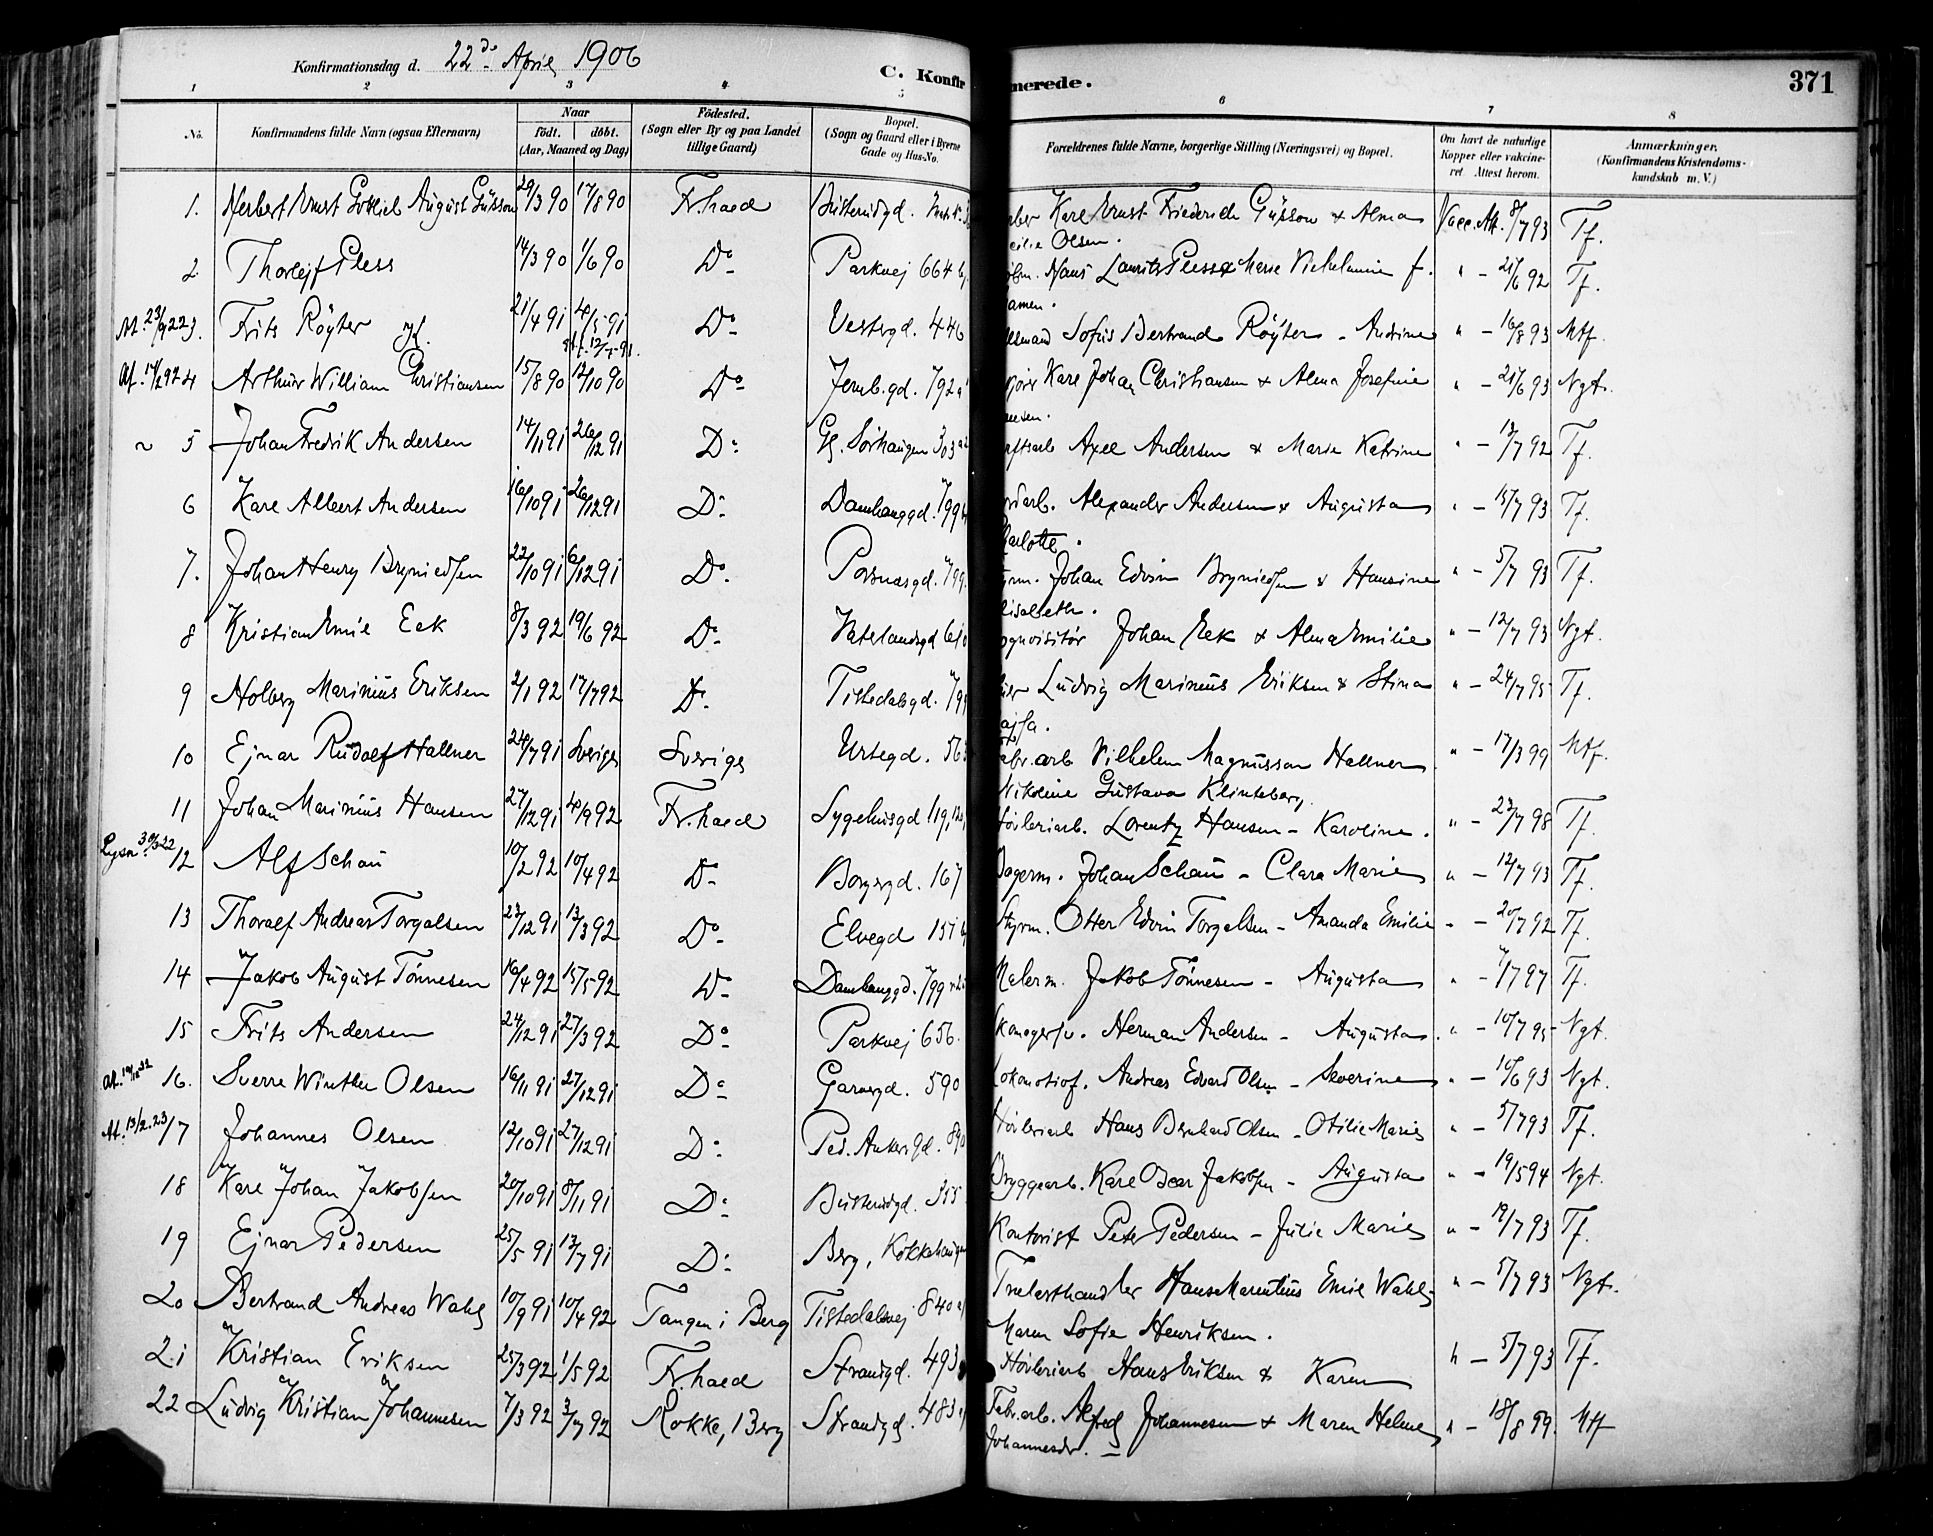 Konfirmationsdag d. 22de April 1906
C. Konfirmerede. 371
1 2 3 4 5 6 7 8
No. Konfirmandens fulde Navn (ogsaa Efternavn) Naar födt. döbt. (Aar, Maaned og Dag) Födested. (Sogn eller By og paa Landet tillige Gaard) Bopæl. (Sogn og Gaard eller i Byerne Gade og Hus-No. Forældrenes fulde Navne, borgerlige Stilling (Næringsvei) og Bopæl. Om havt de naturlige Kopper eller vakcineret. Attest herom. Anmærkninger. (Konfirmandens Kristendomskundskab m. V.)
1. Herbert Ernst Gottlieb August Güsson 29/3 90 17/8 90 Fr.hald Busterudgd. Karl Ernst Friederich Güsson & Alma
Olsen. Vacc. Att. 8/7 93 Tf.
2 Thorlejf Pless 14/3 90 1/6 90 Do Parkvej 664 Hans Laurits Pless & Marie Vilhelmine f. " - 21/6 92 Tf.
3. Frits Röyter 21/4 91 Do Vestergd. 446 Sofus Bertrand Röyter - Andrine " - 16/8 93 Mtf.
4 Arthur William Christiansen 15/8 90 12/10 90 Do Jernb.gd. 792 Karl Johan Christiansen & Alma Josefine " - 21/6 93 Ngt.
5 Johan Fredrik Andersen 14/11 91 26/12 91 Do Gl. Sörhaugen 303 Axel Andersen & Marie Katrine " - 13/7 92 Tf.
6 Karl Albert Andersen 16/10 91 26/12 91 Do Damhauggd. 799 Alexander Andersen & Augusta
Charlotte. " - 15/7 93 Tf.
7. Johan Henry Bryniedsen 22/10 91 6/12 91 Do Johan Edvin Bryniedsen & Hansine
Elisabeth. " - 5/7 93 Tf.
8 Kristian Emil Eek 8/3 92 19/6 92 Do Vaterlandsgd Johan Eek & Alma Emilie " - 12/7 93 Ngt.
9 Holberg Marinius Eriksen 2/1 92 17/7 92 Do Tistedalsgd. Ludvig Marinius Eriksen & Stina " - 24/7 95 Tf.
10 Ejnar Rudolf Hallner 24/7 91 Sverige Sverige Urtegd. 563 Fabr.arb Vilhelm Magnusson Hallner
Nikoline Gustava Klinteberg. " - 17/3 99 Mtf.
11 Johan Marinius Hansen 27/12 91 4/9 92 Fr.hald Sygehusgd 119, Hövleriarb. Lorentz Hansen - Karoline. " - 23/7 98 Tf.
12 Alf Schau 10/2 92 10/4 92 Do Borgergd. 167 Bagerm. Johan Schau - Clara Marie " - 12/7 93 Tf.
13 Thoralf Andreas Torgalsen 23/12 91 13/3 92 Do Elvegd 157 Styrm. Otter Edvin Torgalsen - Amanda Emilie " - 20/7 92 Tf.
14 Jakob August Tönnesen 16/4 92 15/5 92 Do Damhauggd. 799 Malerm. Jakob Tönnesen - Augusta " - 7/1 97 Tf.
15 Frits Andersen 24/12 91 27/3 92 Do Parkvej 656. Skomagersv. Herman Andersen - Augusta " - 10/7 95 Ngt.
16. Sverre Winther Olsen 16/11 91 27/12 91 Do Garvergd. 590 Lokomotivf. Andreas Edvard Olsen - Severine " - 10/6 93 Ngt.
17 Johannes Olsen 12/10 91 27/12 91 Do Ped. Ankersgd. 890 Hövleriarb Hans Bernhard Olsen - Otilie Marie " - 5/7 93 Tf.
18 Karl Johan Jakobsen 20/10 91 8/11 91 Do Busterudgd. 355 Bryggearb. Karl Oscar Jakobsen - Augusta " - 19/5 94 Ngt.
19 Ejnar Pedersen 25/5 91 12/7 91 Do Berg, Kokkehaugen Kontorist Peter Pedersen - Julie Marie " - 19/7 93 Tf.
20 Bertrand Andreas Wahl 10/9 91 10/4 92 Tangen i Berg Tistedalsvej 840 Trælasthandler Hans Marentius Emil Wahl
Maren Sofie Henriksen. " - 5/7 93 Ngt.
21 Kristian Eriksen 25/3 92 1/5 92 Fr.hald Strandgd. 493 Hövleriarb Hans Eriksen & Karen " - 5/7 93 Tf.
22 Ludvig Kristian Johannesen 7/3 92 3/7 92 Rokke, Berg Strandgd. 483 Fabr.arb. Alfred Johannesen & Maren Helene
Johannesdr. " - 18/8 99. Mtf